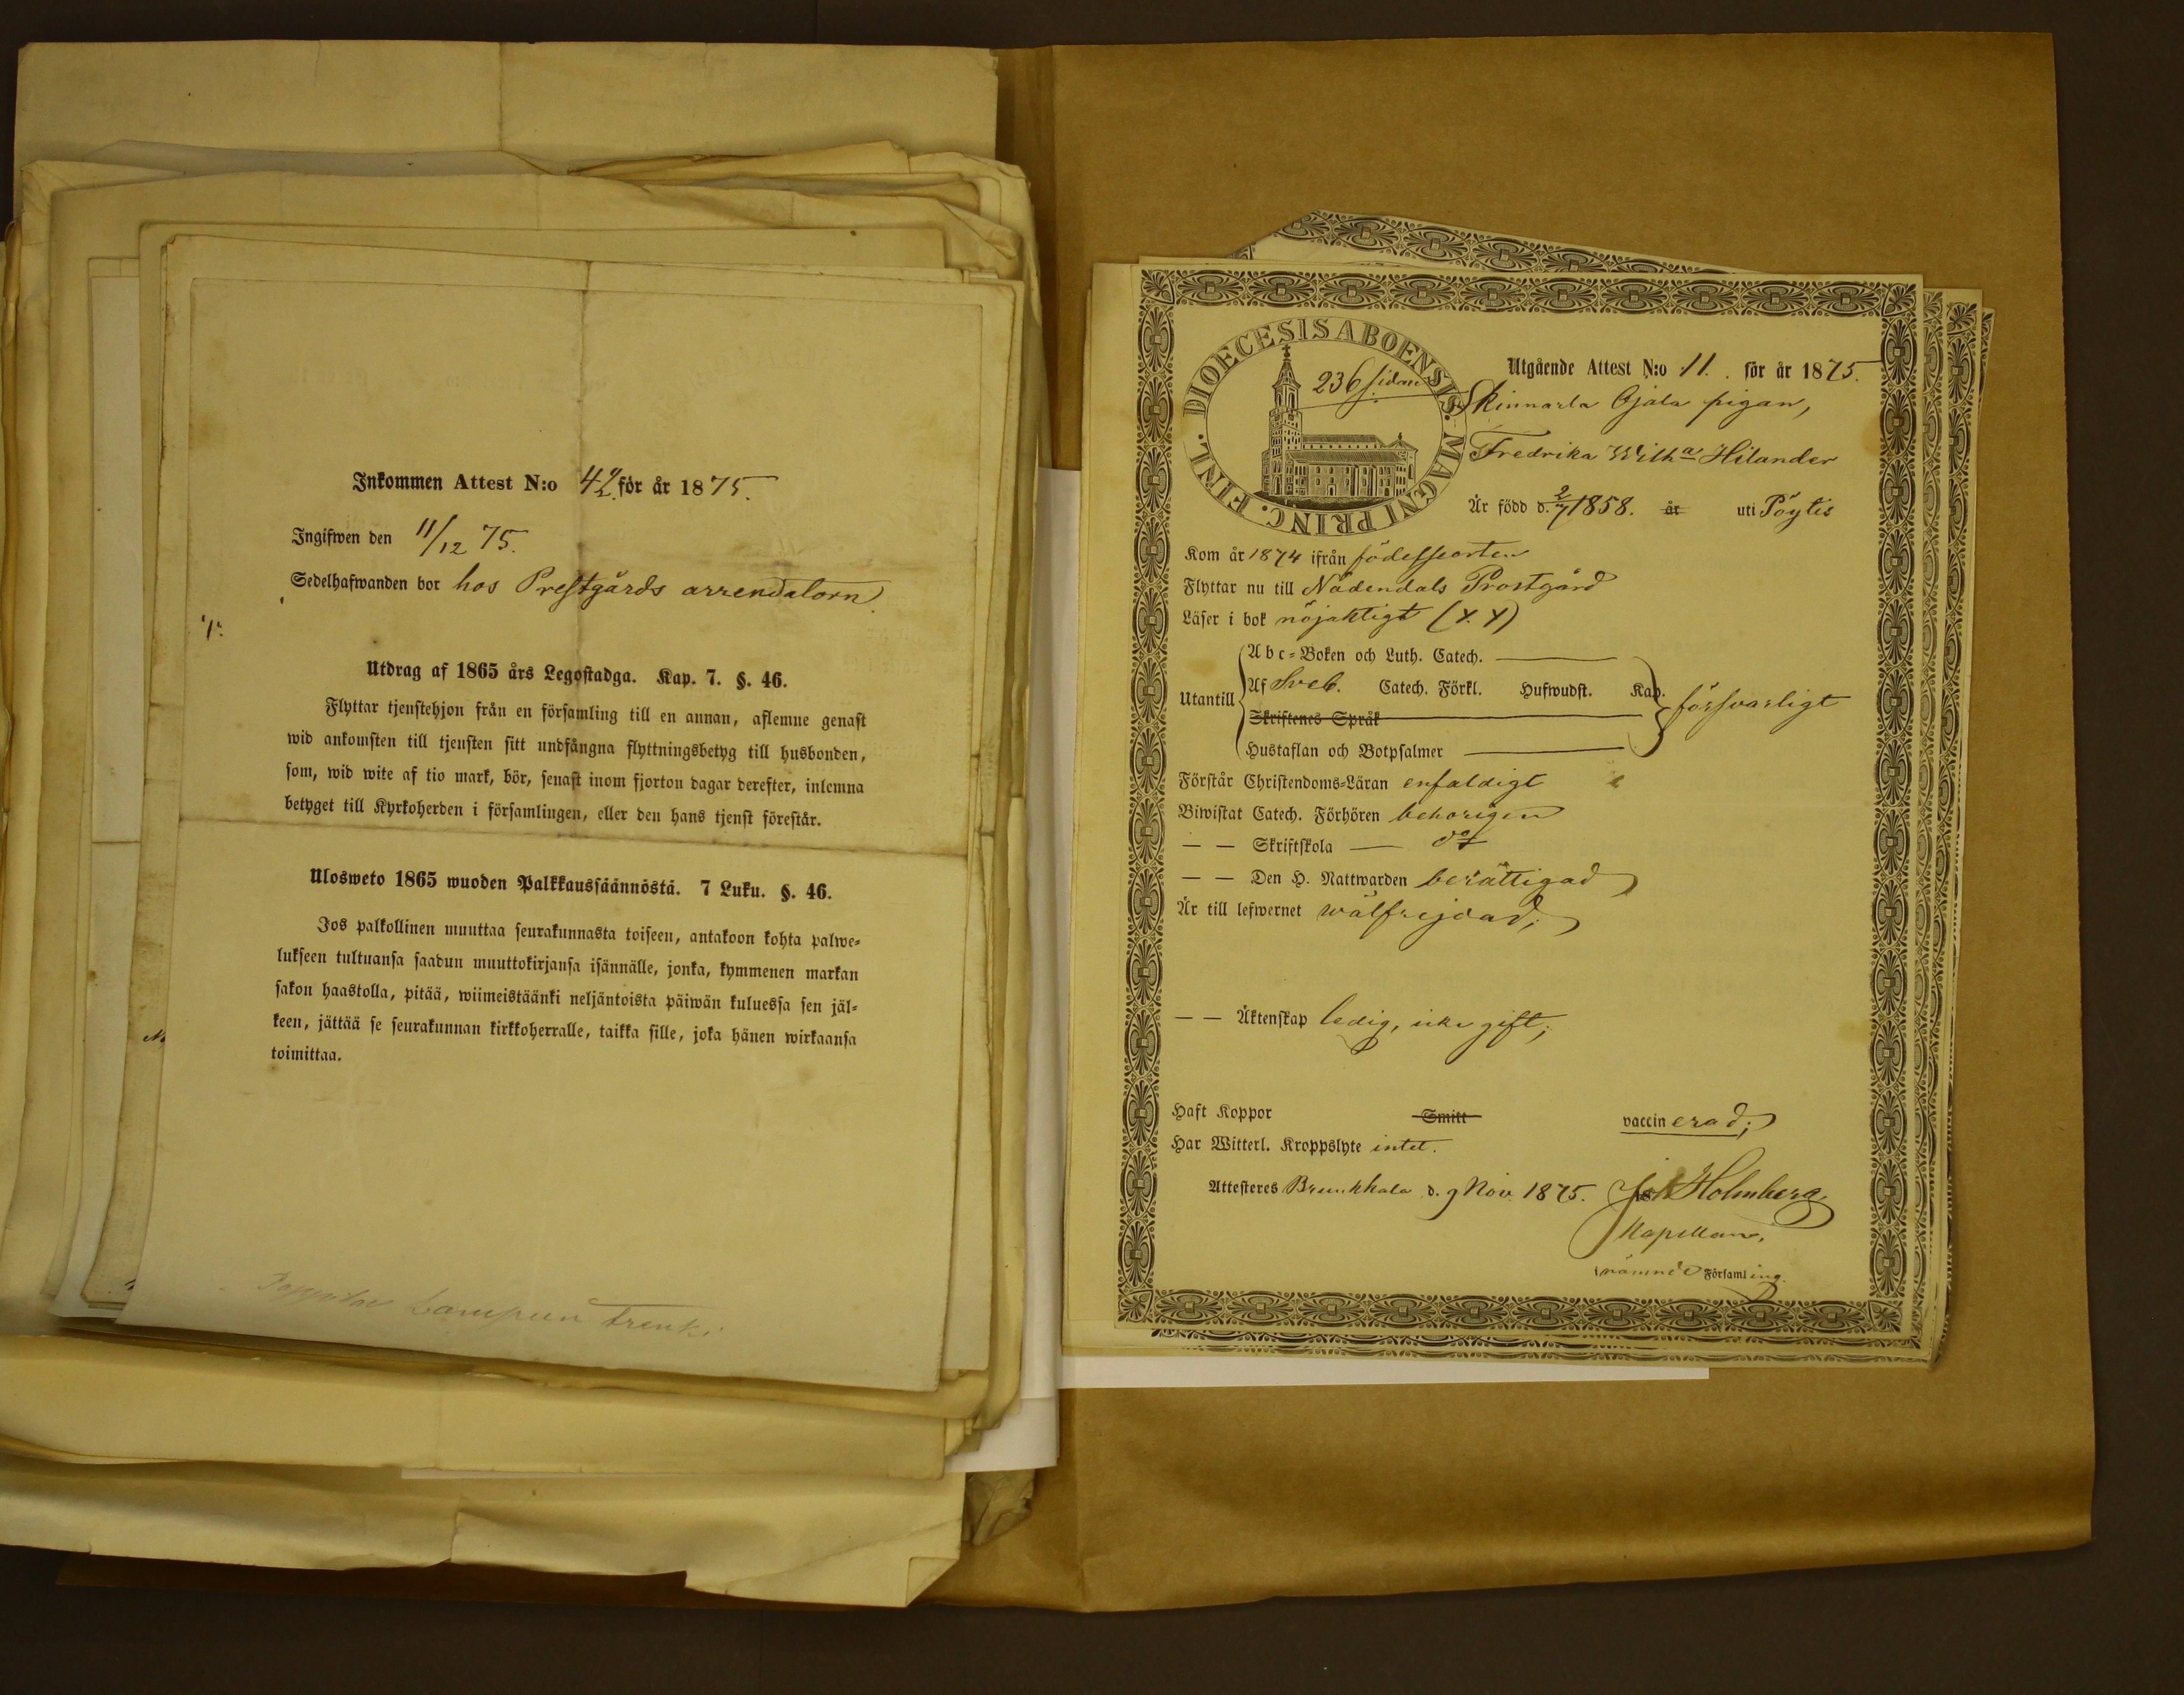 Inkommen Attest N:o 42. för år 1875.
Ingifwen den 11/12 75.
Sedelhafwanden bor hos Prestgårds arrendatorn
Utdrag af 1865 års Legostadga. Kap. 7. §. 46.
Flyttar tjenstehjon från en församling till en annan, aflemne genast
wid ankomsten till tjensten sitt undfångna flyttningsbetyg till husbonden,
som, wid wite af tio mark, bör, senast inom fjorton dagar derefter, inlemna
betyget till Kyrkoherden i församlingen, eller den hans tjenst förestår.
Ulosweto 1865 wuoden Palkkaussäännöstä. 7 Luku. §. 46.
Jos palkollinen muuttaa seurakunnasta toiseen, antakoon kohta palwe-
lukseen tultuansa saadun muuttokirjansa isännälle, jonka, kymmenen markan
sakon haastolla, pitää, wiimeistäänki neljäntoista päiwän kuluessa sen jäl-
keen, jättää se seurakunnan kirkkoherralle, taikka sille, joka hänen wirkaansa
toimittaa.
Lampuen trenki
DIOECESIS ABOENSIS. MAGNI PRINC. FINL.
236 sidan
Utgående Attest N:o 11. för år 1875.
Skinnarla Ojala pigan,
Fredrika Wilh:a Hilander
Är född d. 2/7 1858. år uti Pöytis
Kom år 1874 ifrån födelseorten
Flyttar nu till Nådendals Prostgård
Läser i bok nöjaktigt (Y. Y)
Utantill
Abc-Boken och Luth. Catech.
Af Sveb. Catech. Förkl. Hufwudst. Kap.
Skriftenes Språk
Hustaflan och Botpsalmer
försvarligt
Förstår Christendoms-Läran enfaldigt
Biwistat Catech. Förhören behörigen
— — Skriftskola — do
— — Den H. Nattwarden berättigad
Är till lefwernet wälfrejdad;
— — Äktenskap ledig, icke gift;
Haft Koppor Smitt vaccinerad;
Har Witterl. Kroppslyte intet.
Attesteres Brunkkala d. 9 Nov. 1875. Holmberg,
Kapellan,
nämnde Församling.